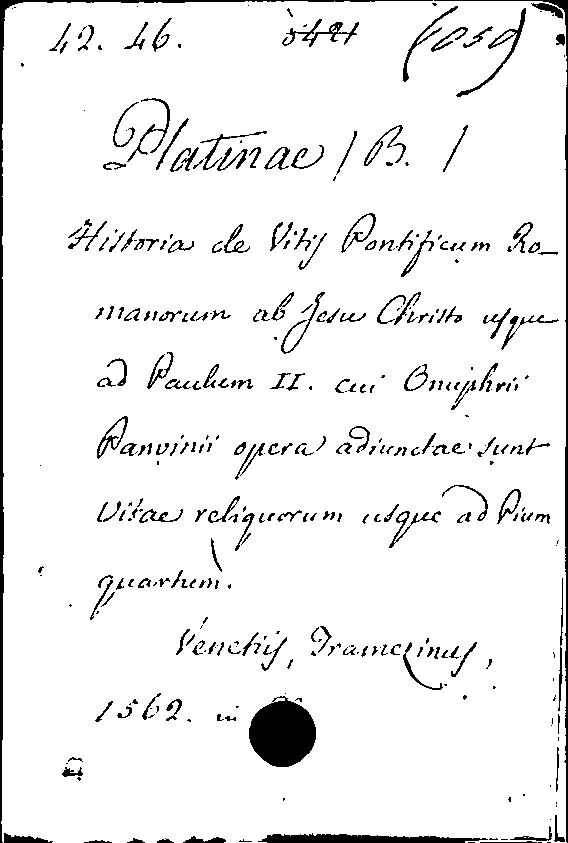 42. 46. 5421 (1050)
Platinae / B. /
Historia de Vitis Pontificum Ro-
manorum ab Jesu Christo usque
ad Paulum II. cui Onuphrii
Panvinii opera adiunctae sunt
Vitae reliquorum usque ad Pium
quartum.
Venetiis, Tramezinus,
1562. in